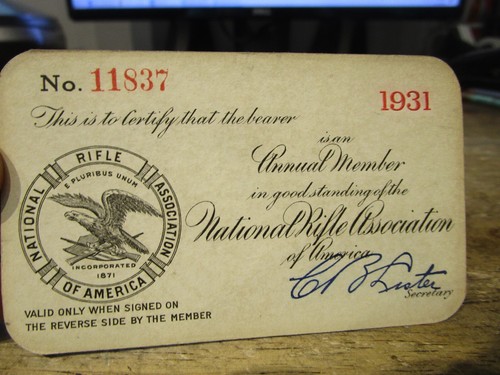 No. 11837
1931
This is to Certify that the bearer
is an
Annual Member
in good standing of the
National Rifle Association
of America
C B Lister
Secretary
NATIONAL RIFLE ASSOCIATION
OF AMERICA
E PLURIBUS UNUM
INCORPORATED
1871
VALID ONLY WHEN SIGNED ON
THE REVERSE SIDE BY THE MEMBER